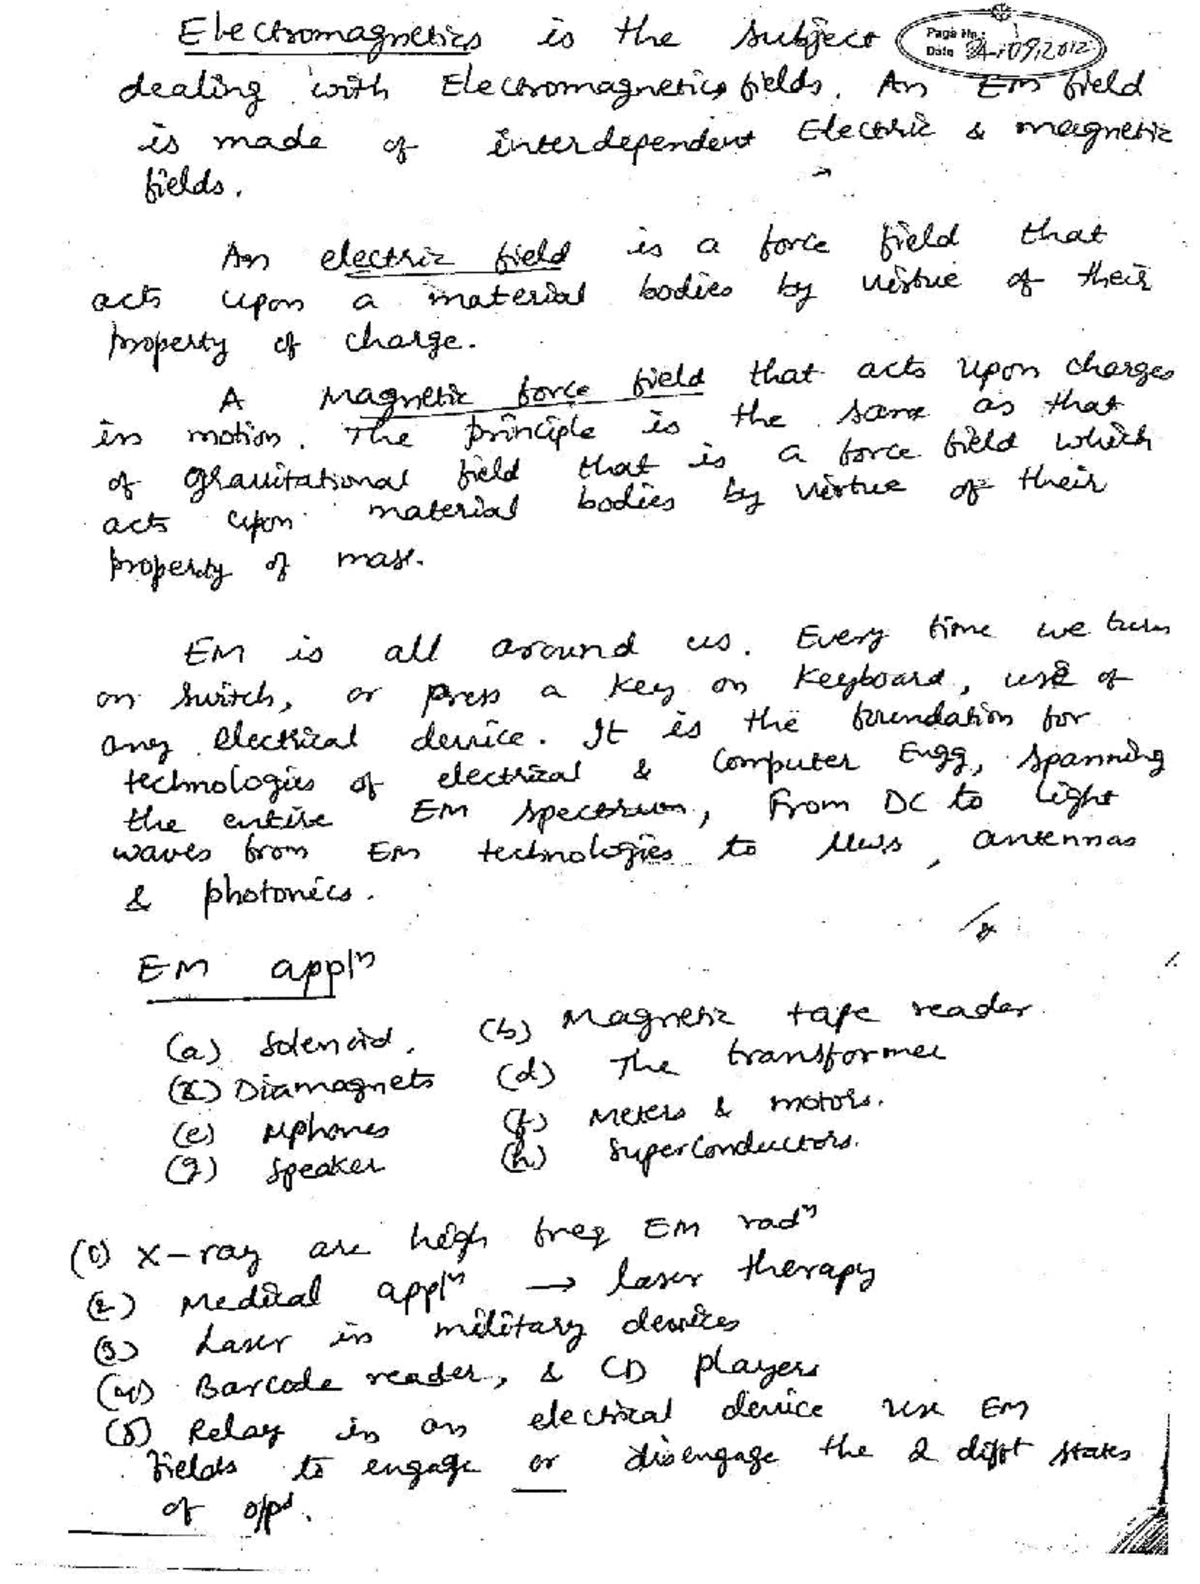 Electromagnetics is the subject
Page No.:
Date 24.09.2012
dealing with Electromagnetics fields. An EM field
is made of interdependent Electric & magnetic
fields.
An electric field is a force field that
acts upon a material bodies by virtue of their
property of charge.
A Magnetic force field that acts upon charges
in motion. The principle is the same as that
of gravitational field that is a force field which
acts upon material bodies by virtue of their
property of mass.
EM is all around us. Every time we turn
on switch, or press a key on keyboard, use of
any electrical device. It is the foundation for
technologies of electrical & Computer Engg, spanning
the entire EM spectrum, From DC to light
waves from EM technologies to Mws, antennas
& photonics.
EM appln
(a) Solenoid. (b) Magnetic tape reader.
(c) Diamagnets (d) The transformer
(e) Mphones (f) Meters & motors.
(g) Speaker (h) Superconductors.
(1) X-ray are high freq EM radn
(2) Medical appln → laser therapy
(3) Laser in military devices
(4) Barcode reader, & CD players
(5) Relay in an electrical device use EM
fields to engage or disengage the 2 difft states
of o/p.